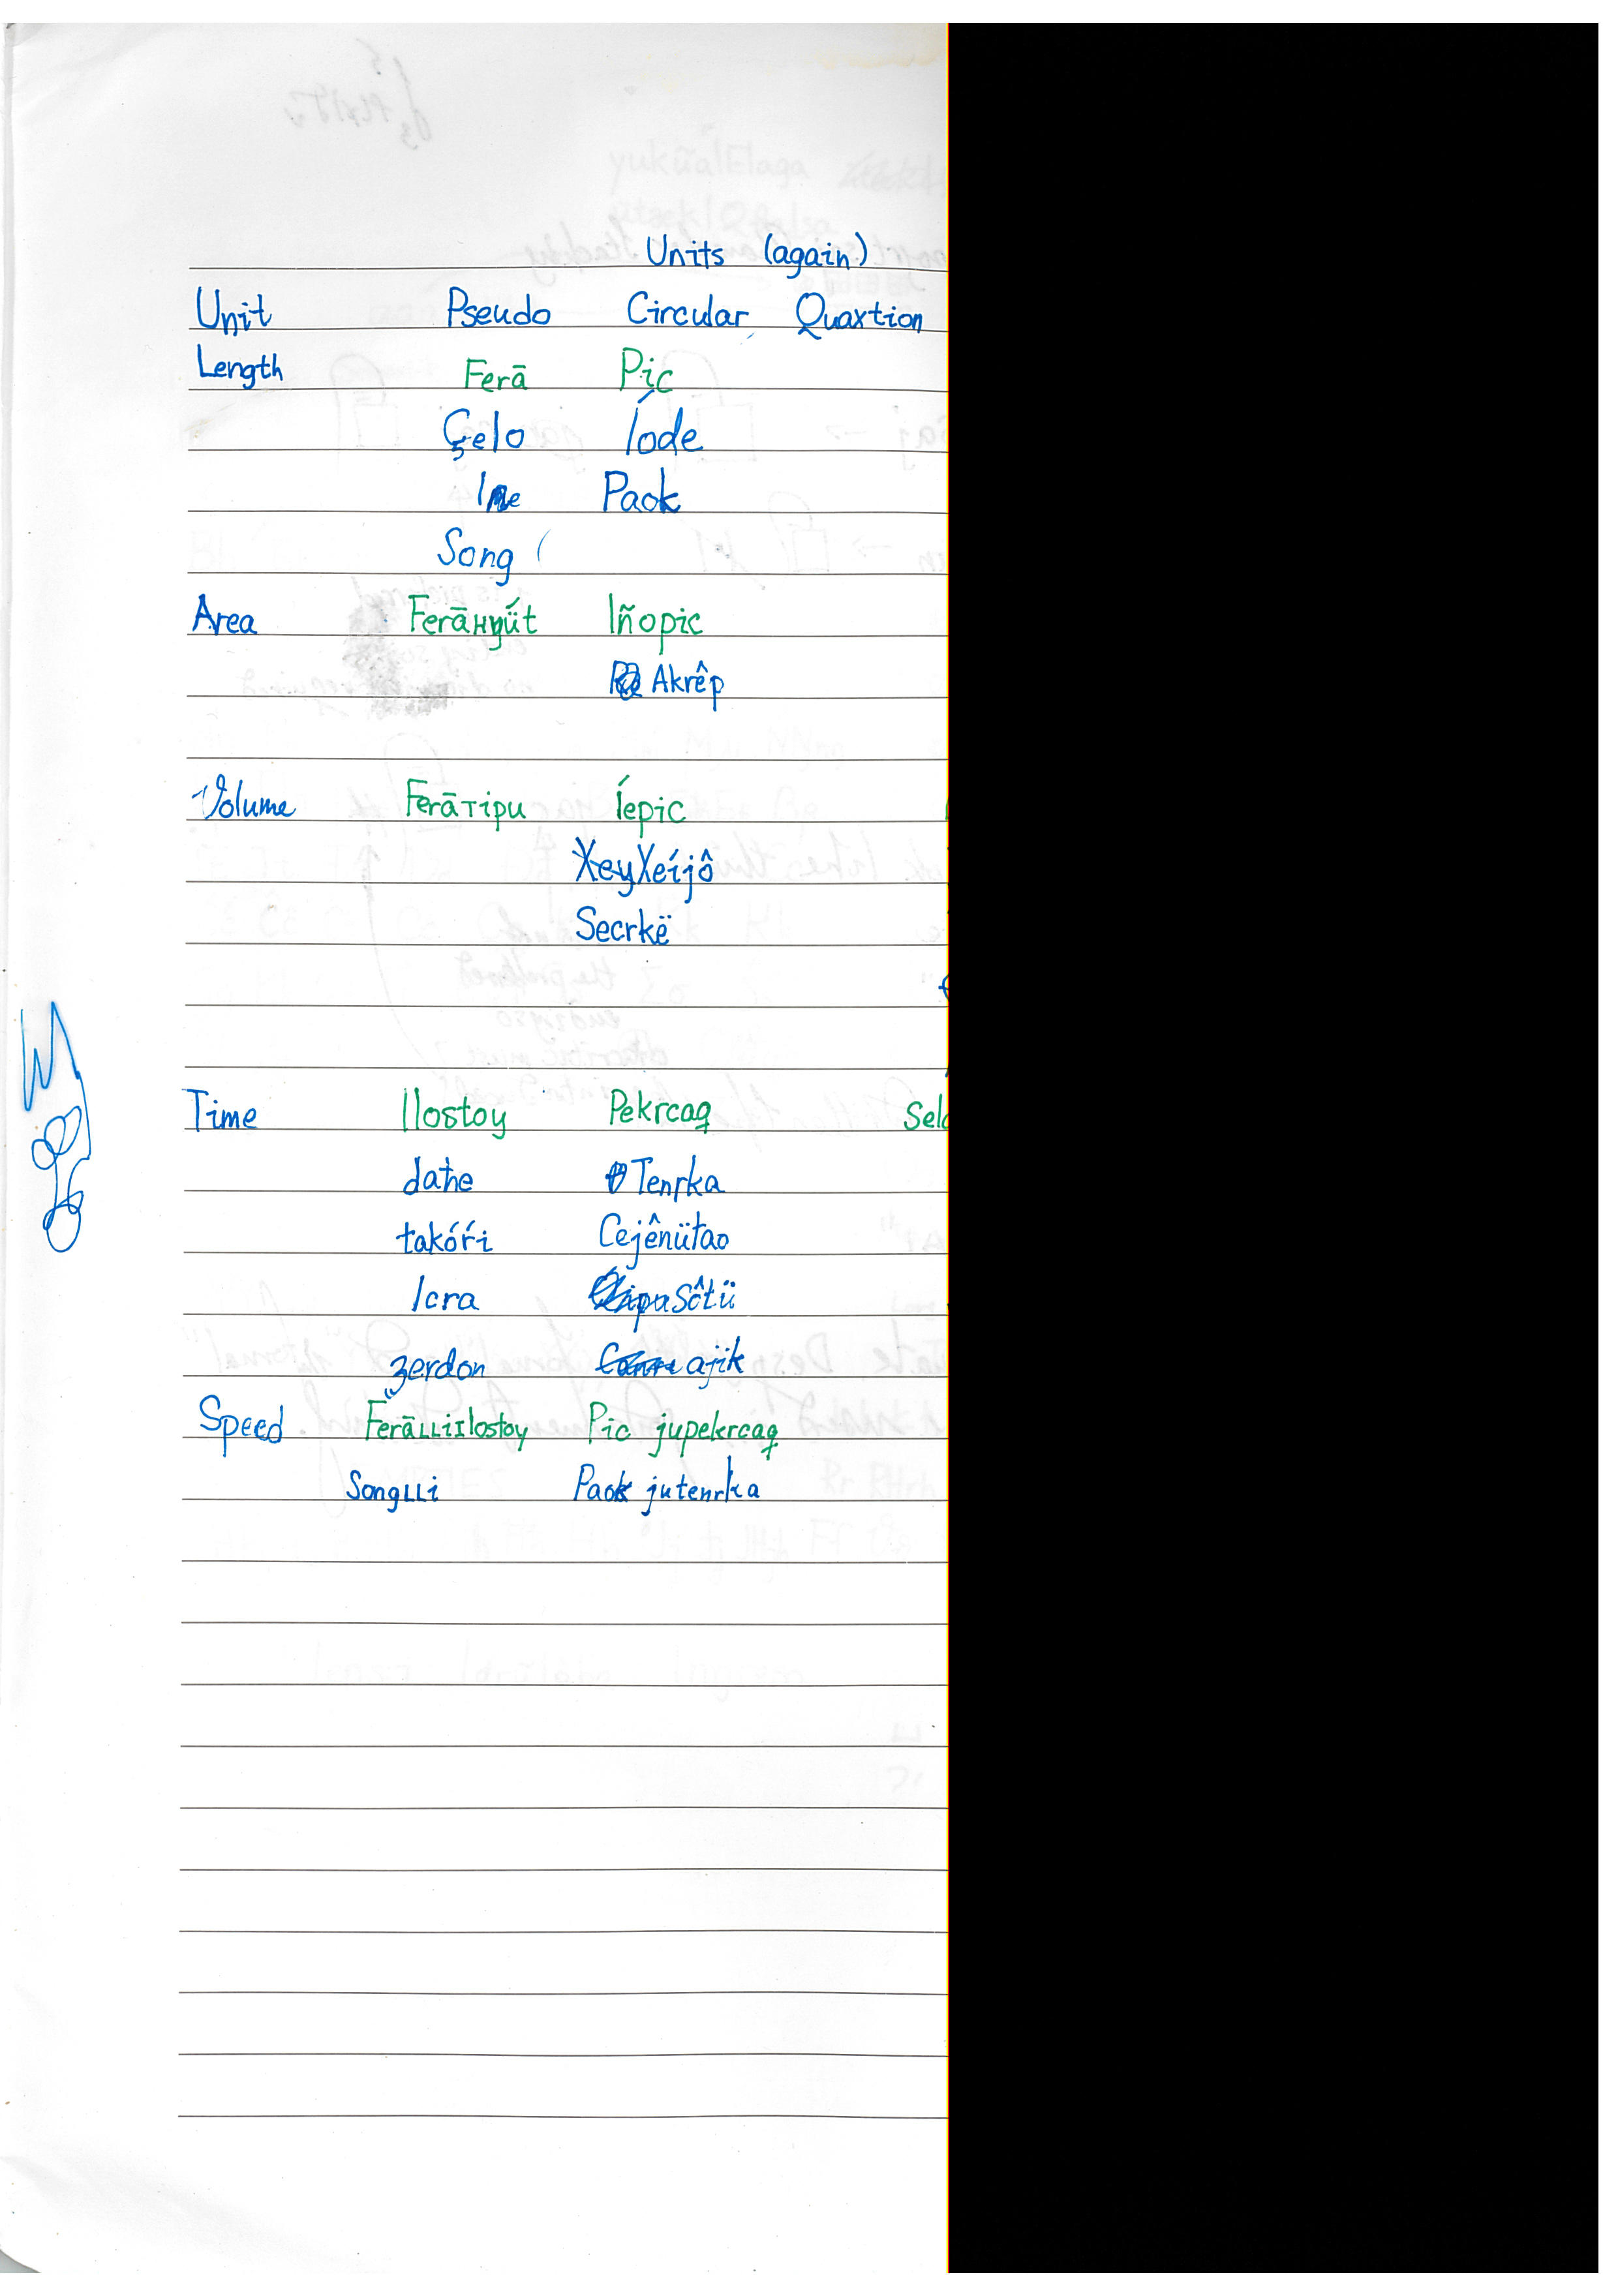 Units (again)
Unit Pseudo Circular Quaxtion
Length Ferā Pic
Çelo Íode
Paok
Song
Area Iñopic
Akrêp
Volume Ferāтipu Íepic
XeyXeíjô
Secrkë
Time Ilostoy Pekrcaq
dahe Tenrka
takóŕi Cejênütao
Icra Sôtü
zerdon ajik
Speed FerāLLiIlostoy Pic jupekrcaq
SongLLi Paok jutenrka